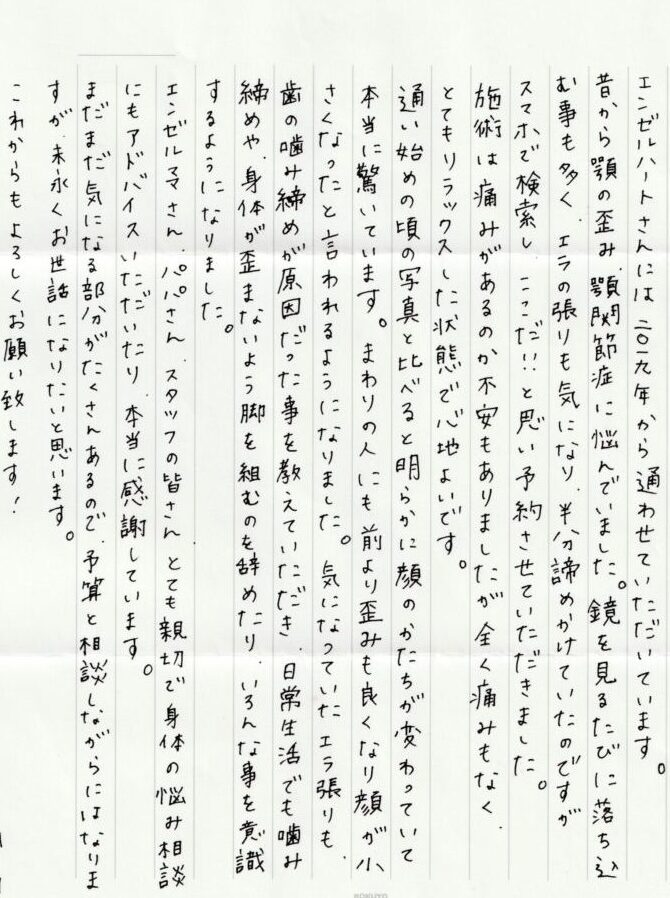 エンゼルハートさんには二〇一九年から通わせていただいています。
昔から顎の歪み、顎関節症に悩んでいました。鏡を見るたびに落ち込
む事も多く、エラの張りも気になり、半分諦めかけていたのですが
スマホで検索し、ここだ!!と思い予約させていただきました。
施術は痛みがあるのか不安もありましたが全く痛みもなく、
とてもリラックスした状態で心地よいです。
通い始めの頃の写真と比べると明らかに顔のかたちが変わっていて
本当に驚いています。まわりの人にも前より歪みも良くなり顔が小
さくなったと言われるようになりました。気になっていたエラ張りも、
歯の噛み締めが原因だった事を教えていただき、日常生活でも噛み
締めや、身体が歪まないよう脚を組むのを辞めたり、いろんな事を意識
するようになりました。
エンゼルママさん、パパさん、スタッフの皆さん、とても親切で身体の悩み相談
にもアドバイスいただいたり、本当に感謝しています。
まだまだ気になる部分がたくさんあるので、予算と相談しながらにはなりま
すが、末永くお世話になりたいと思います。
これからもよろしくお願い致します!
KOKUYO